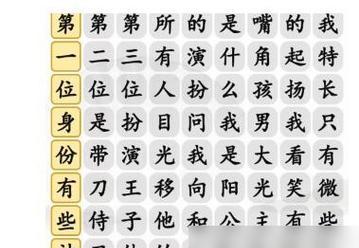 第第第所的是嘴的我
一二三有演什角起特
位位位人扮么孩扬长
身是扮目问我男我只
份带演光我是大看有
有刀王移向阳光笑微
些侍子他和公主有些